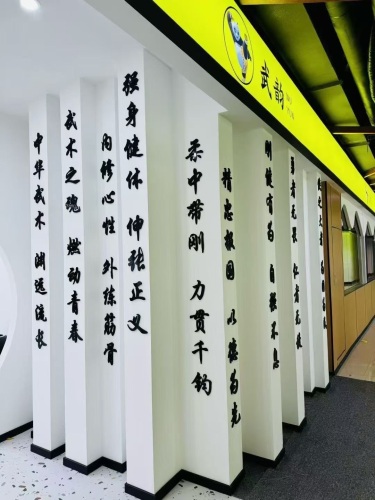 武韵
中华武术 渊远流长
武术之魂 燃动青春
内修心性 外练筋骨
强身健体 伸张正义
柔中带刚 力贯千钧
精忠报国 以德为先
刚健有为 自强不息
勇者无畏 仁者无敌